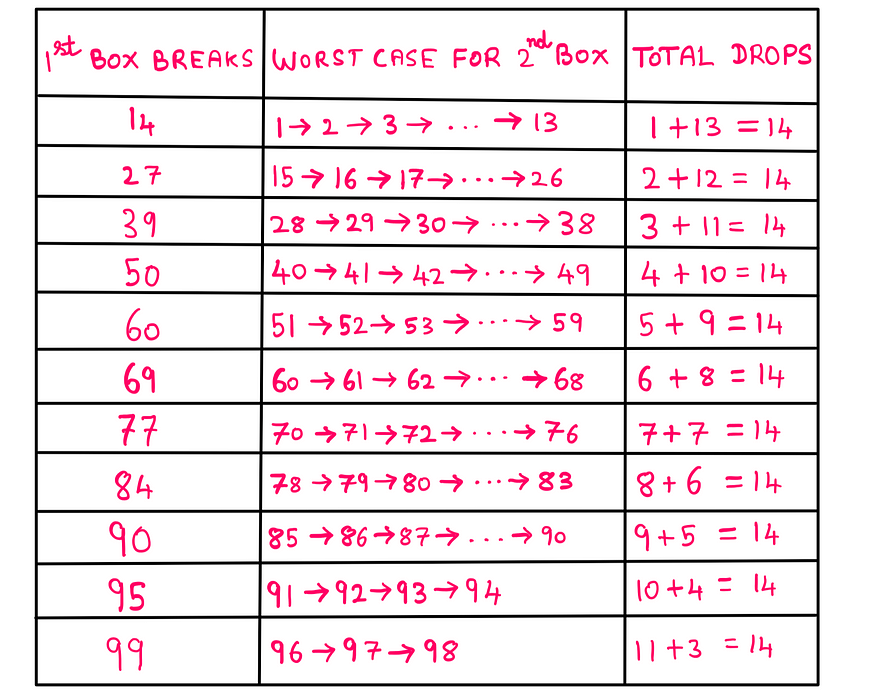 1st BOX BREAKS WORST CASE FOR 2nd BOX TOTAL DROPS
14 1→2→3→...→13 1+13=14
27 15→16→17→...→26 2+12=14
39 28→29→30→...→38 3+11=14
50 40→41→42→...→49 4+10=14
60 51→52→53→...→59 5+9=14
69 60→61→62→...→68 6+8=14
77 70→71→72→...→76 7+7=14
84 78→79→80→...→83 8+6=14
90 85→86→87→...→90 9+5=14
95 91→92→93→94 10+4=14
99 96→97→98 11+3=14